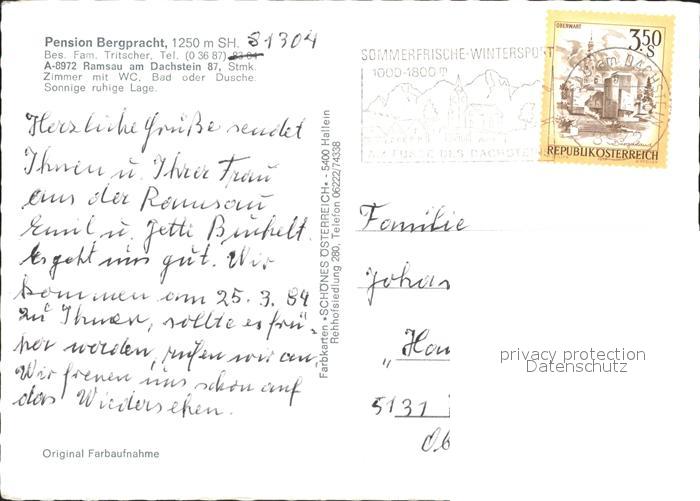 Pension Bergpracht, 1250 m SH. 81304
Bes. Fam. Tritscher, Tel. (0 36 87)
A-8972 Ramsau am Dachstein 87, Stmk.
Zimmer mit WC, Bad oder Dusche.
Sonnige ruhige Lage.
Herzliche Grüße sendet
Ihnen u. Ihrer Frau
aus der Ramsau
Emil u. Jetti
Es geht uns gut. Wir
kommen am 25. 3. 84
zu Ihnen, sollte es frü-
her werden, rufen wir an.
Wir freuen uns schon auf
das Wiedersehen.
Original Farbaufnahme
Farbkarten •SCHÖNES ÖSTERREICH• - 5400 Hallein
Rehhofsiedlung 280, Telefon 06222/74338
SOMMERFRISCHE-WINTERSPORT
1000-1800 m
AM FUSSE DES DACHSTEIN
OBERWART
3.50
S
REPUBLIK ÖSTERREICH
Familie
Johas
„Hau
5131
Ob
privacy protection
Datenschutz